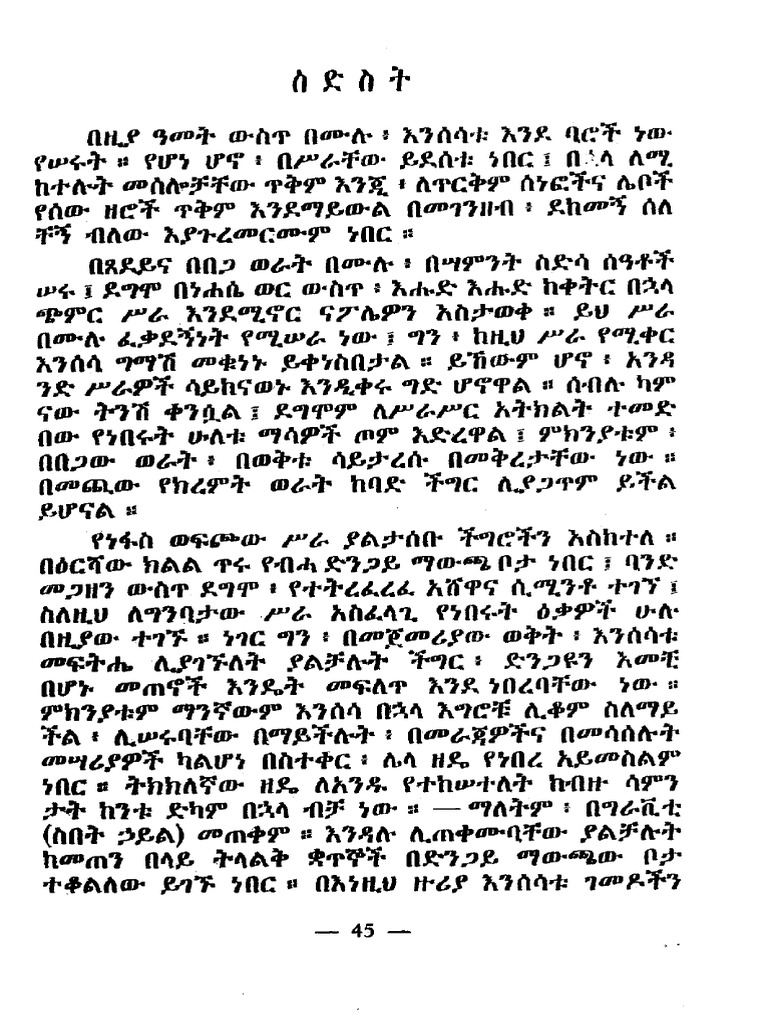 ስድስት
በዚያ ዓመት ውስጥ በሙሉ ፡ እንሰሳቱ እንደ ባሮች ነው
የሠሩት ። የሆነ ሆኖ ፡ በሥራቸው ይደሰቱ ነበር ፤ ለሚ
ከተሉት መሰሎቻቸው ጥቅም እንጂ ፡ ለጥርቅም ሰነፎችና ሌቦች
የሰው ዘሮች ጥቅም እንደማይውል በመገንዘብ ፡ ደከመኝ ሰለ
ቸኝ ብለው እያጉረመርሙም ነበር ።
በጸደይና በበጋ ወራት በሙሉ ፡ በሣምንት ስድሳ ሰዓቶች
ሠሩ ፤ ደግሞ በነሐሴ ወር ውስጥ ፡ እሑድ እሑድ ከቀትር በኋላ
ጭምር ሥራ እንደሚኖር ናፖሌዎን አስታወቀ ። ይህ ሥራ
በሙሉ ፈቃደኝነት የሚሠራ ነው ፤ ግን ፡ ከዚህ ሥራ የሚቀር
እንሰሳ ግማሽ መቁነኑ ይቀነስበታል ። ይኸውም ሆኖ ፡ አንዳ
ንድ ሥራዎች ሳይከናወኑ እንዲቀሩ ግድ ሆኖዋል ። ሰብሉ ካም
ናው ትንሽ ቀንሷል ፤ ደግሞም ለሥራሥር አትክልት ተመድ
በው የነበሩት ሁለቱ ማሳዎች ጦም አድረዋል ፤ ምክንያቱም ፡
በበጋው ወራት ፡ በወቅቱ ሳይታረሱ በመቅረታቸው ነው ።
በመጪው የክረምት ወራት ከባድ ችግር ሊያጋጥም ይችል
ይሆናል ።
የነፋስ ወፍጮው ሥራ ያልታሰቡ ችግሮችን አስከተለ ።
በዕርሻው ክልል ጥሩ የብሓ ድንጋይ ማውጫ ቦታ ነበር ፤ ባንድ
መጋዘን ውስጥ ደግሞ ፡ የተትረፈረፈ አሸዋና ሲሚንቶ ተገኘ ፤
ስለዚህ ለግንባታው ሥራ አስፈላጊ የነበሩት ዕቃዎች ሁሉ
በዚያው ተገኙ ። ነገር ግን ፡ በመጀመሪያው ወቅት ፡ እንሰሳቱ
መፍትሔ ሊያገኙለት ያልቻሉት ችግር ፡ ድንጋዩን እመቺ
በሆኑ መጠኖች እንዴት መፍለጥ እንደ ነበረባቸው ነው ።
ምክንያቱም ማንኛውም እንሰሳ በኋላ እግሮቹ ሊቆም ስለማይ
ችል ፡ ሊሠሩባቸው በማይችሉት ፡ በመራጃዎችና በመሳሰሉት
መሣሪያዎች ካልሆነ በስተቀር ፡ ሌላ ዘዴ የነበረ አይመስልም
ነበር ። ትክክለኛው ዘዴ ለአንዱ የተከሠተለት ከብዙ ሳምን
ታት ከንቱ ድካም በኋላ ብቻ ነው ። — ማለትም ፡ በግራቪቲ
(ስበት ኃይል) መጠቀም ። እንዳሉ ሊጠቀሙባቸው ያልቻሉት
ከመጠን በላይ ትላልቅ ቋጥኞች በድንጋይ ማውጫው ቦታ
ተቆልለው ይገኙ ነበር ። በእነዚህ ዙሪያ እንሰሳቱ ገመዶችን
— 45 —